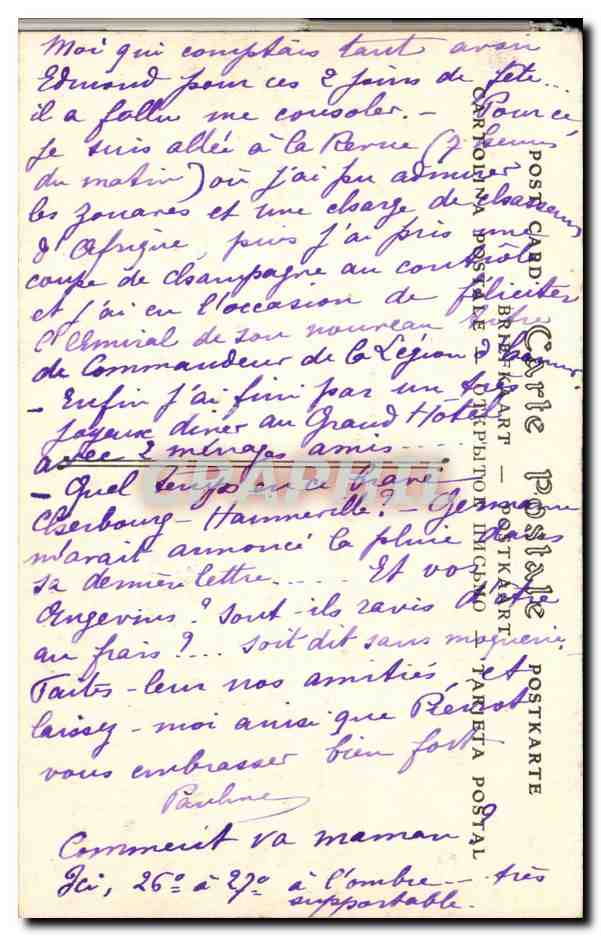 Moi qui comptais tant avoir
Edmond pour ces 2 jours de fête...
il a fallu me consoler. — Pour ce
je suis allée à la Revue (7 heures
du matin) où j'ai pu admirer
les zouaves et une charge de chasseurs
d'Afrique, puis j'ai pris une
coupe de champagne au contrôle
et j'ai eu l'occasion de féliciter
l'Amiral de son nouveau
de Commandeur de la Légion d'honneur.
— Enfin j'ai fini par un
joyeux diner au Grand Hôtel
avec 2 ménages amis ....
— Quel temps en ce brave
Cherbourg — ? — Germaine
m'avait annoncé la pluie dans
sa dernière lettre..... Et vos
Angevins? sont-ils ravis d'être
au frais?... soit dit sans moquerie.
Faites-leur nos amitiés et
laissez-moi ainsi que
vous embrasser bien fort
Pauline
Comment va maman?
Ici, 26° à 27° à l'ombre — très
supportable.
Carte Postale
POST CARD — POSTKARTE
BRIEFKAART — POSTKAART
CARTOLINA POSTALE — ОТКРЫТОЕ ПИСЬМО — TARJETA POSTAL